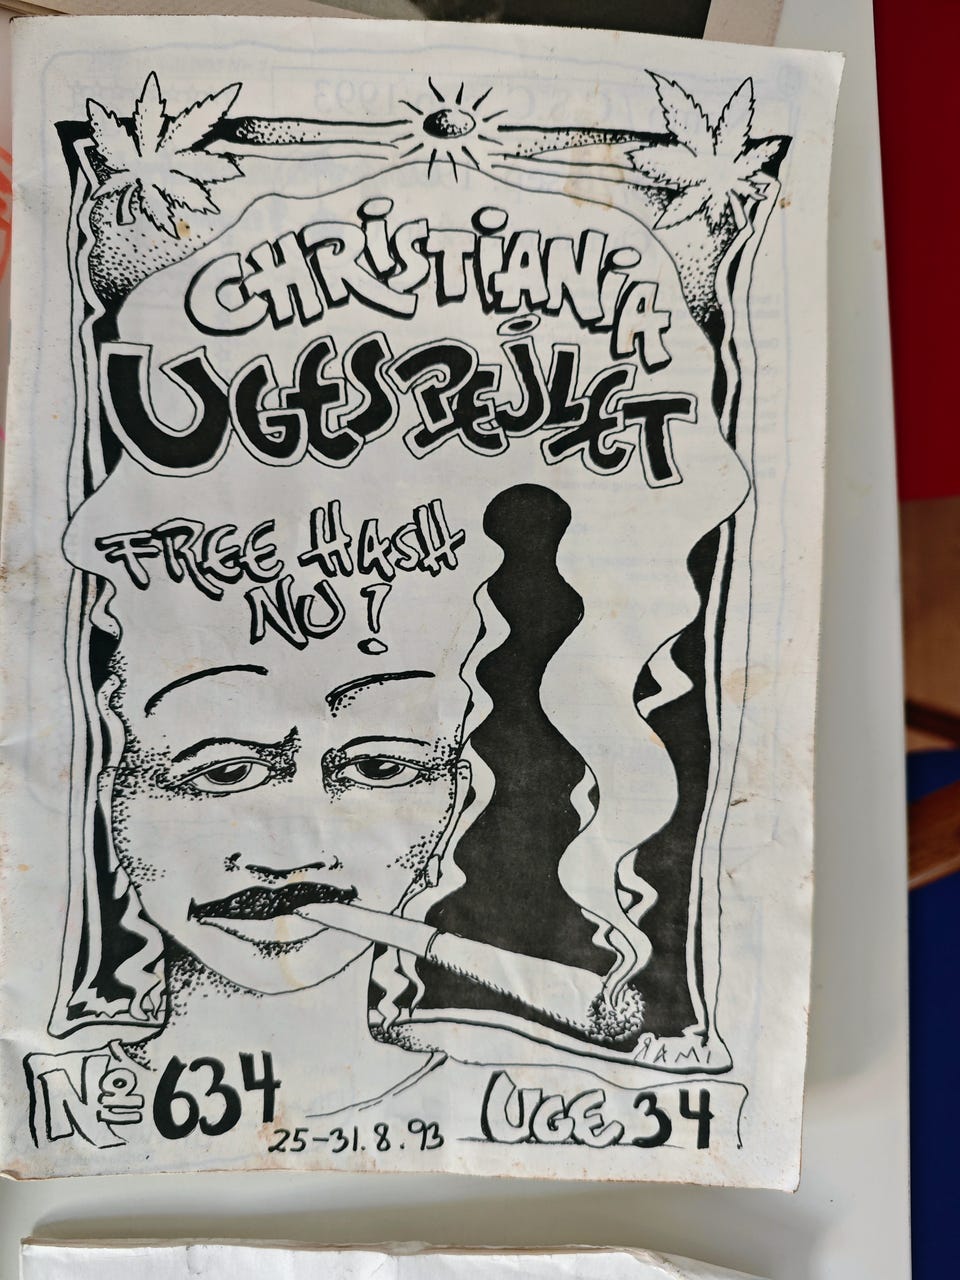 CHRISTIANIA
UGESPEJLET
FREE HASH
NU!
RAMI
No 634
25-31.8.93
UGE 34